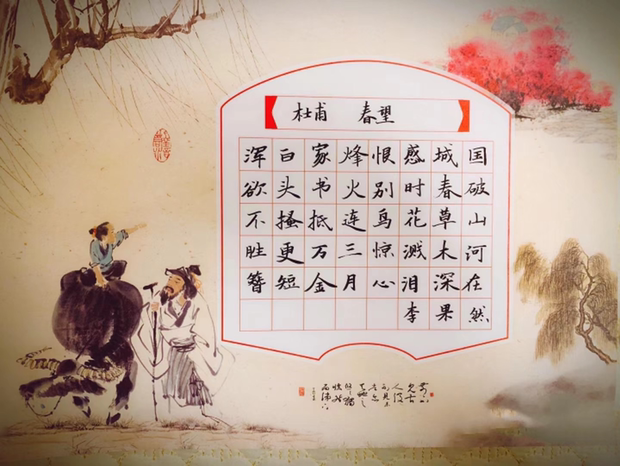 杜甫 春望
国破山河在
城春草木深
感时花溅泪
恨别鸟惊心
烽火连三月
家书抵万金
白头搔更短
浑欲不胜簪
李果然